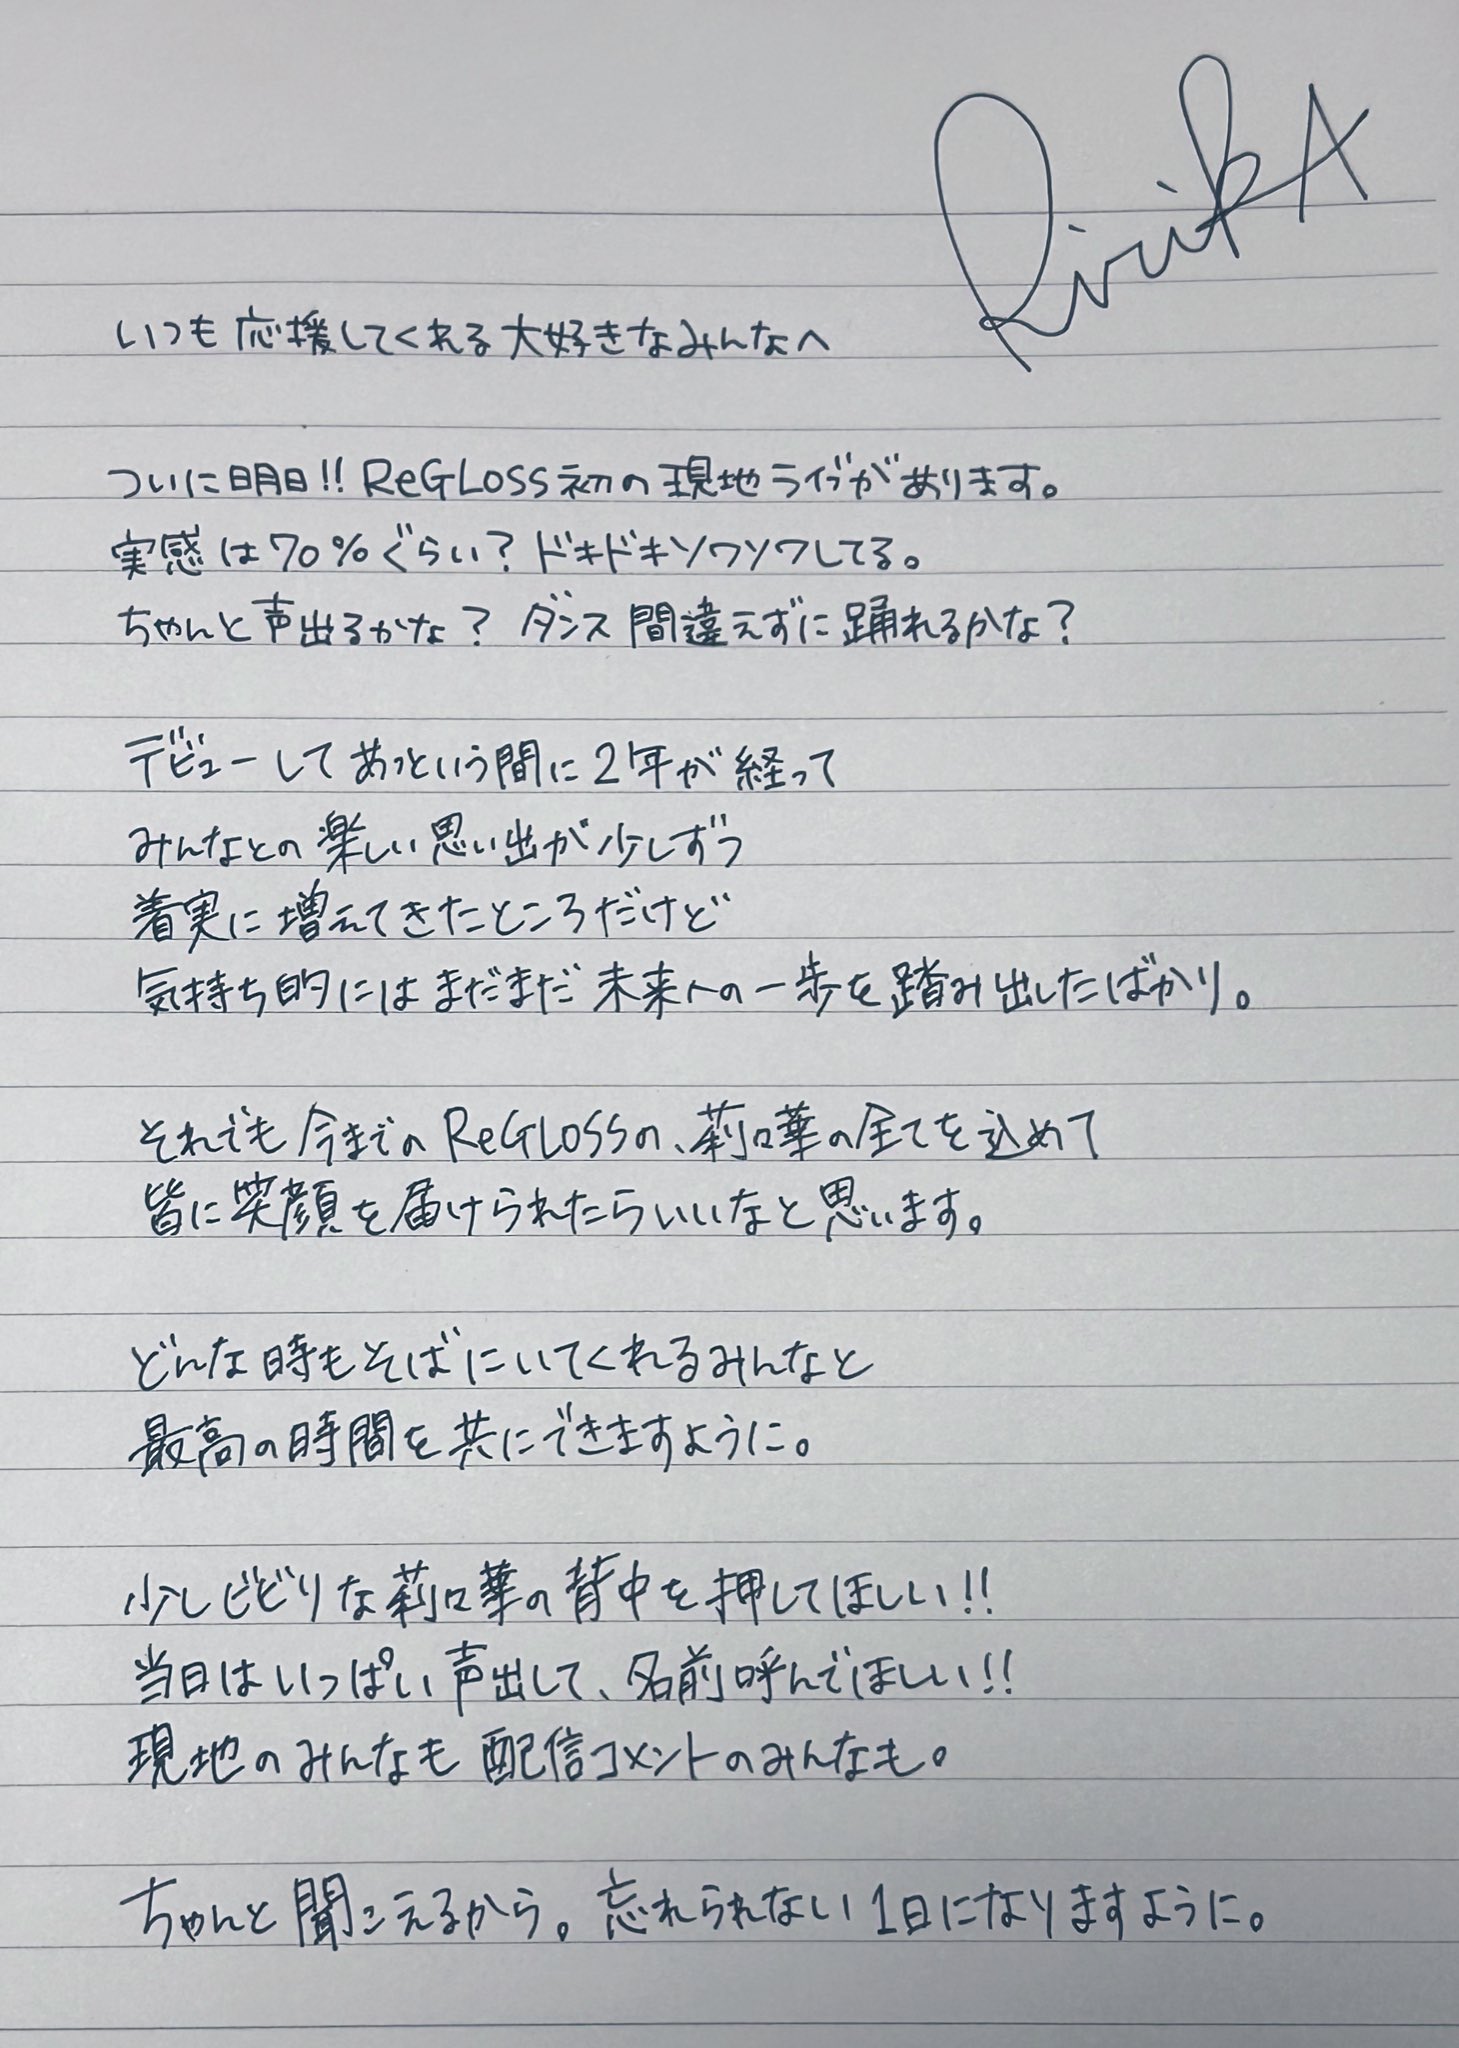 RirikA
いつも応援してくれる大好きなみんなへ
ついに明日!! ReGLOSS初の現地ライブがあります。
実感は70%ぐらい?ドキドキソワソワしてる。
ちゃんと声出るかな? ダンス間違えずに踊れるかな?
デビューしてあっという間に2年が経って
みんなとの楽しい思い出が少しずつ
着実に増えてきたところだけど
気持ち的にはまだまだ未来への一歩を踏み出したばかり。
それでも今までのReGLOSSの、莉々華の全てを込めて
皆に笑顔を届けられたらいいなと思います。
どんな時もそばにいてくれるみんなと
最高の時間を共にできますように。
少しビビりな莉々華の背中を押してほしい!!
当日はいっぱい声出して、名前呼んでほしい!!
現地のみんなも配信コメントのみんなも。
ちゃんと聞こえるから。忘れられない1日になりますように。